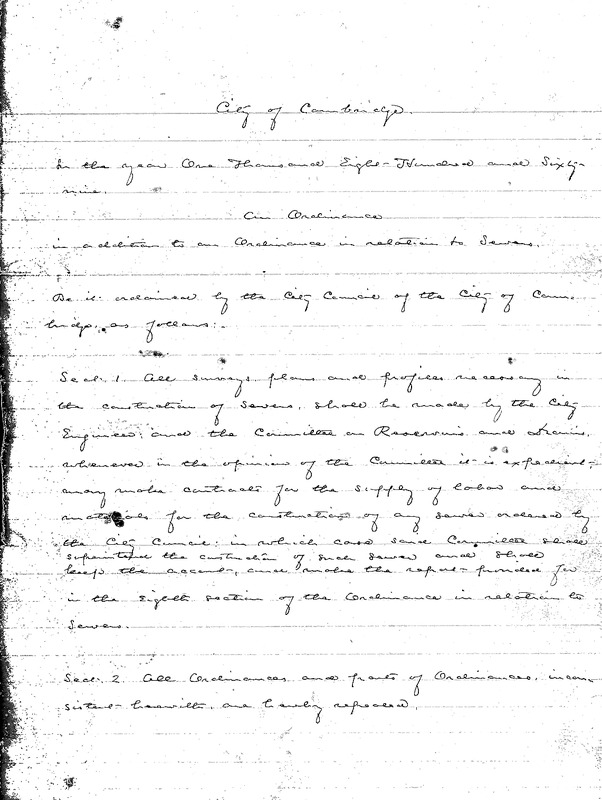 City of Cambridge.
In the year One Thousand Eight-Hundred and Sixty-
nine.
An Ordinance
in addition to an Ordinance in relation to Sewers.
Be it ordained by the City Council of the City of Cam-
bridge, as follows:.
Sect. 1. All surveys, plans and profiles necessary in
the construction of sewers, shall be made by the City
Engineer; and the Committee on Reservoirs and Drains,
whenever in the opinion of the Committee it is expedient-
may make contracts for the supply of labor and
materials for the construction of any sewer ordered by
the City Council: in which case said Committee shall
superintend the construction of such sewer and shall
keep the account, and make the report provided for
in the Eighth section of the Ordinance in relation to
Sewers.
Sect. 2. All Ordinances and parts of Ordinances, incon-
sistent herewith, are hereby repealed.